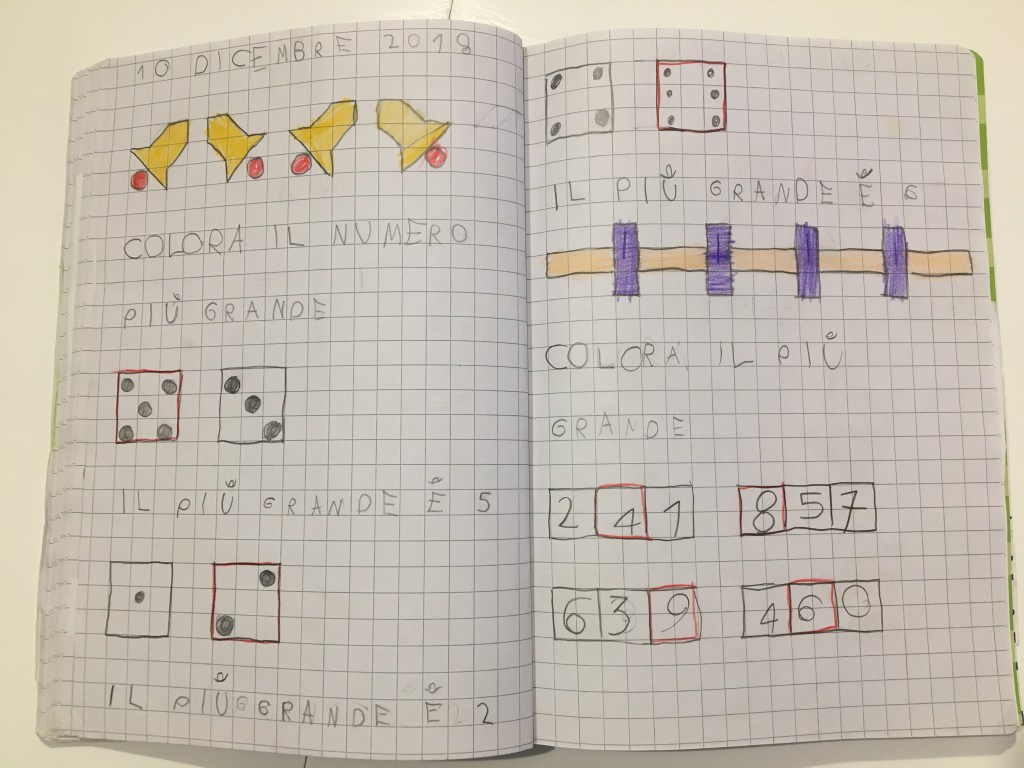 10 DICEMBRE 2018
COLORA IL NUMERO
PIÙ GRANDE
IL PIÙ GRANDE È 5
IL PIÙ GRANDE È 2
IL PIÙ GRANDE È 6
COLORA IL PIÙ
GRANDE
2 4 1 8 5 7
6 3 9 4 6 0